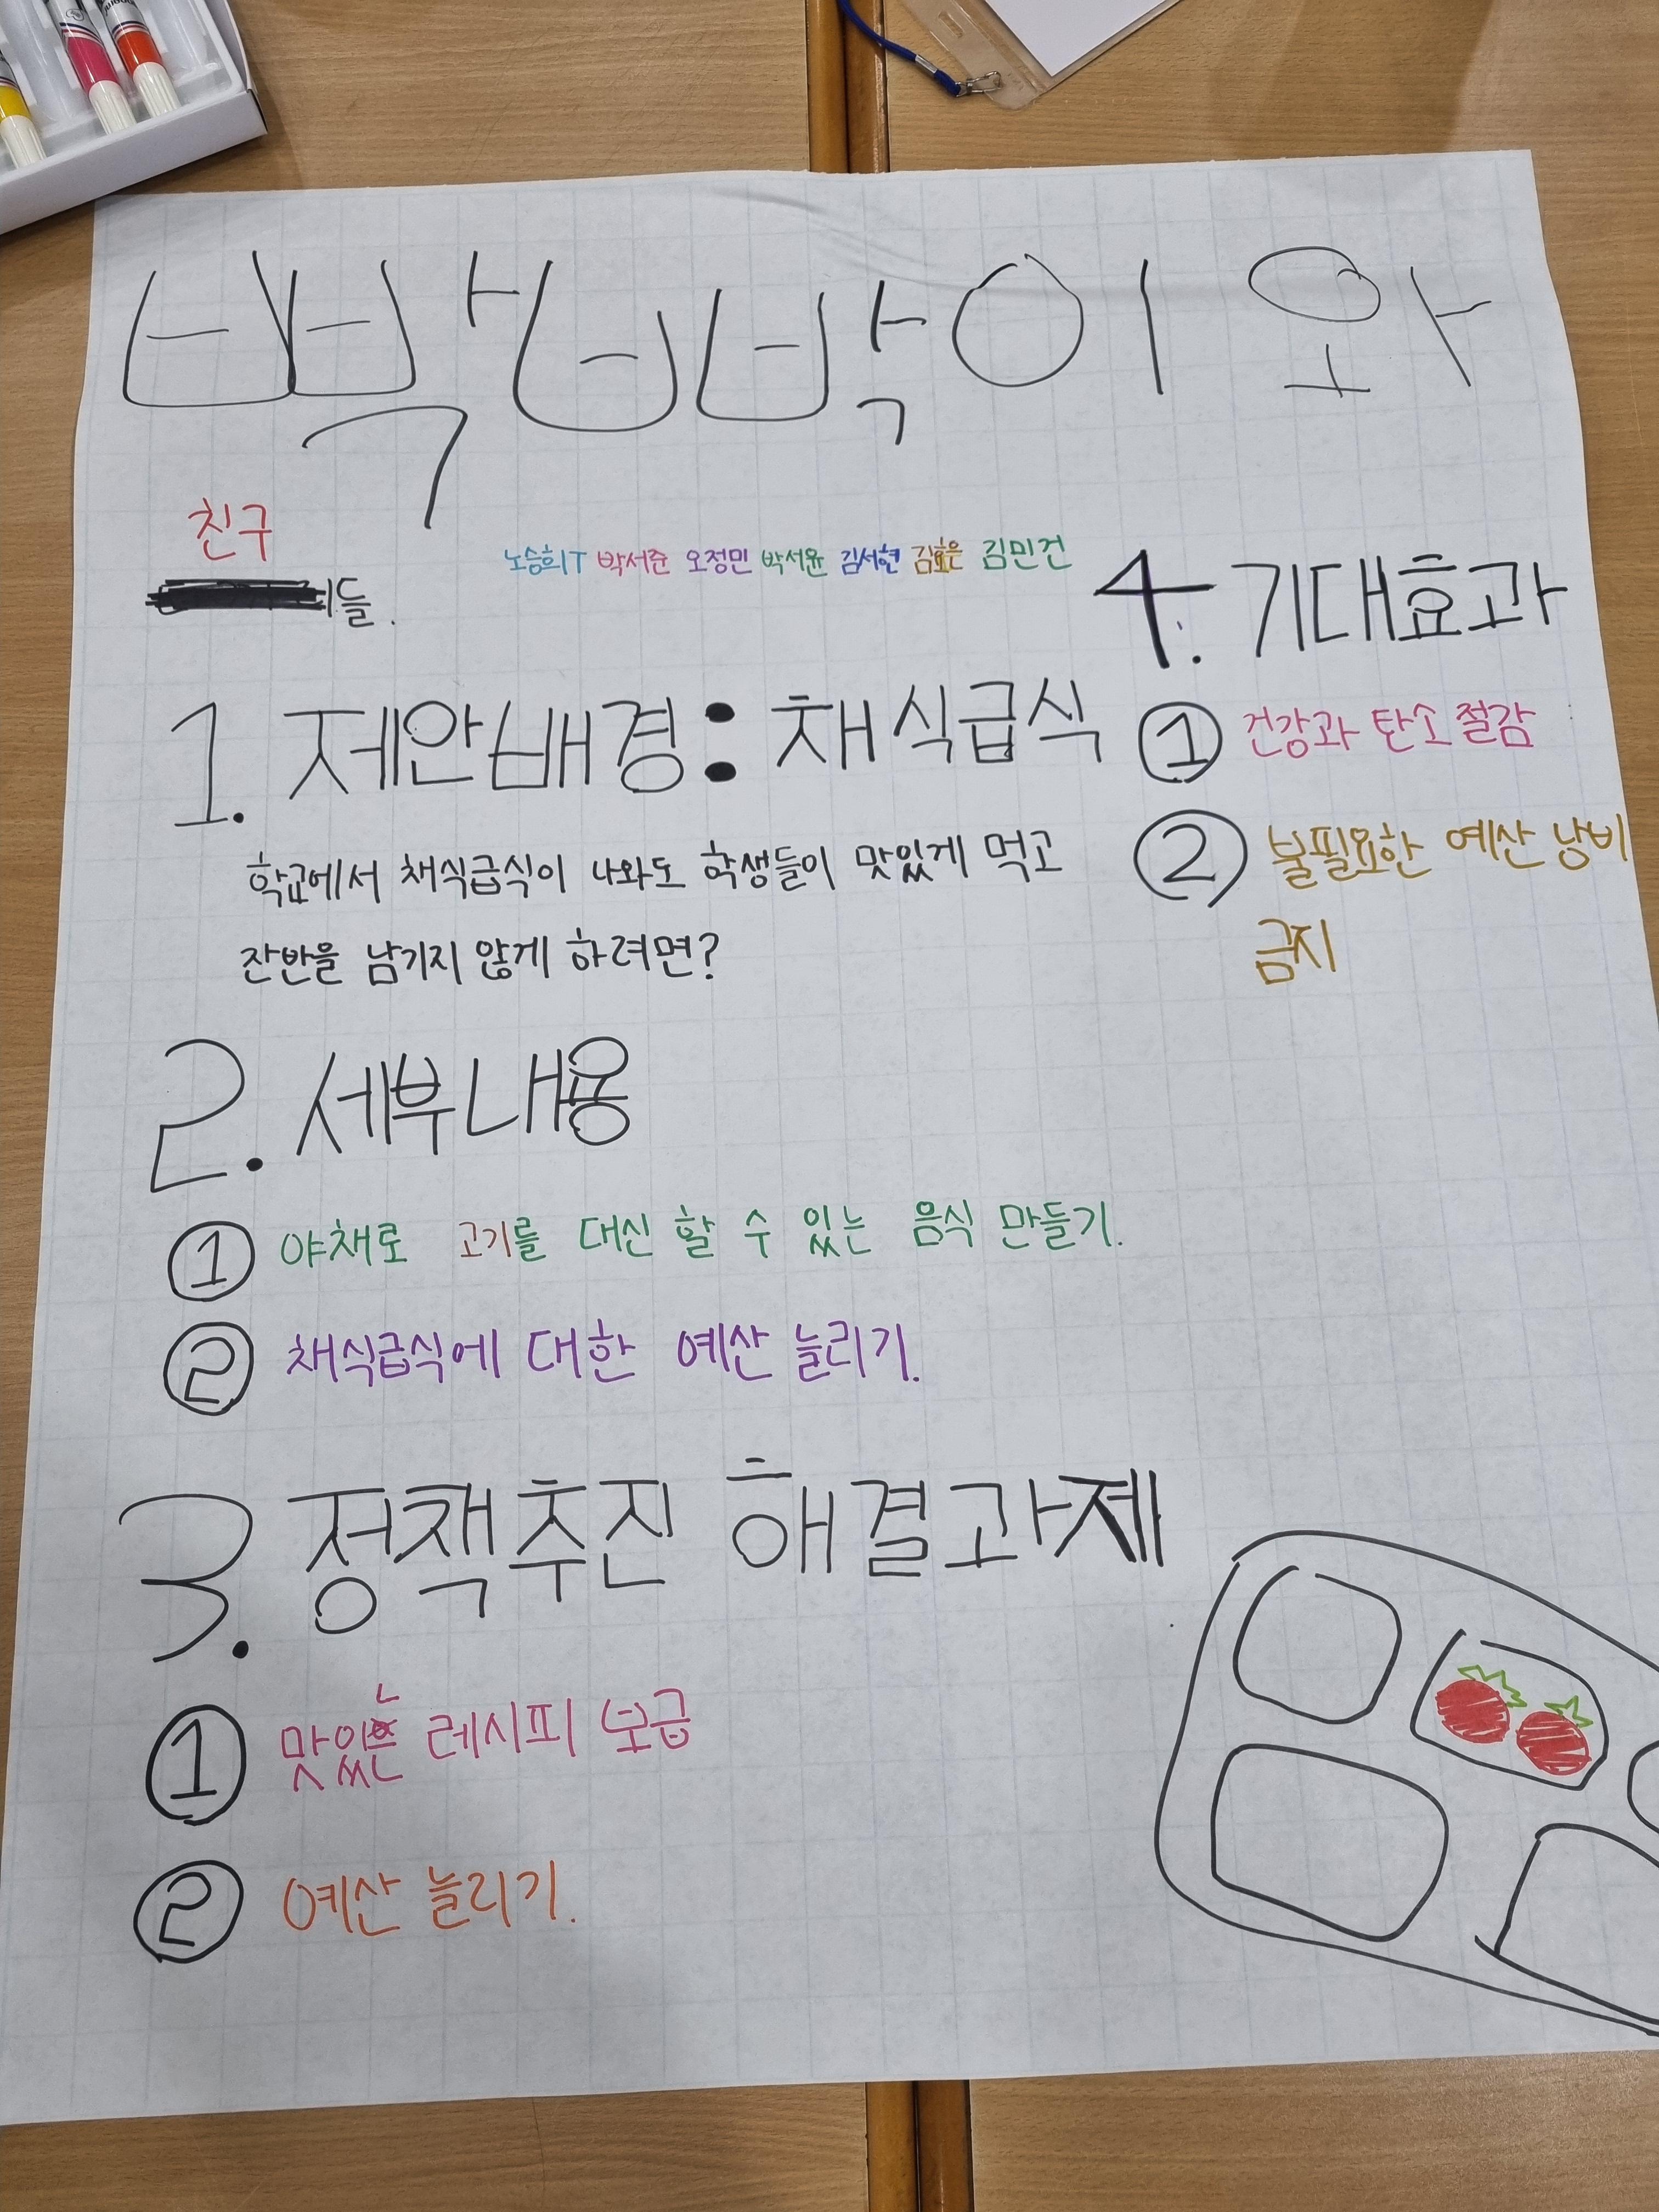 빡빡이와
친구
들.
노승희T 박서준 오정민 박서윤 김서현 김효은 김민건
1. 제안배경: 채식급식
학교에서 채식급식이 나와도 학생들이 맛있게 먹고
잔반을 남기지 않게 하려면?
2. 세부내용
① 야채로 고기를 대신 할 수 있는 음식 만들기.
② 채식급식에 대한 예산 늘리기.
3. 정책추진 해결과제
① 맛있는 레시피 보급
② 예산 늘리기.
4. 기대효과
① 건강과 탄소 절감
② 불필요한 예산 낭비
금지